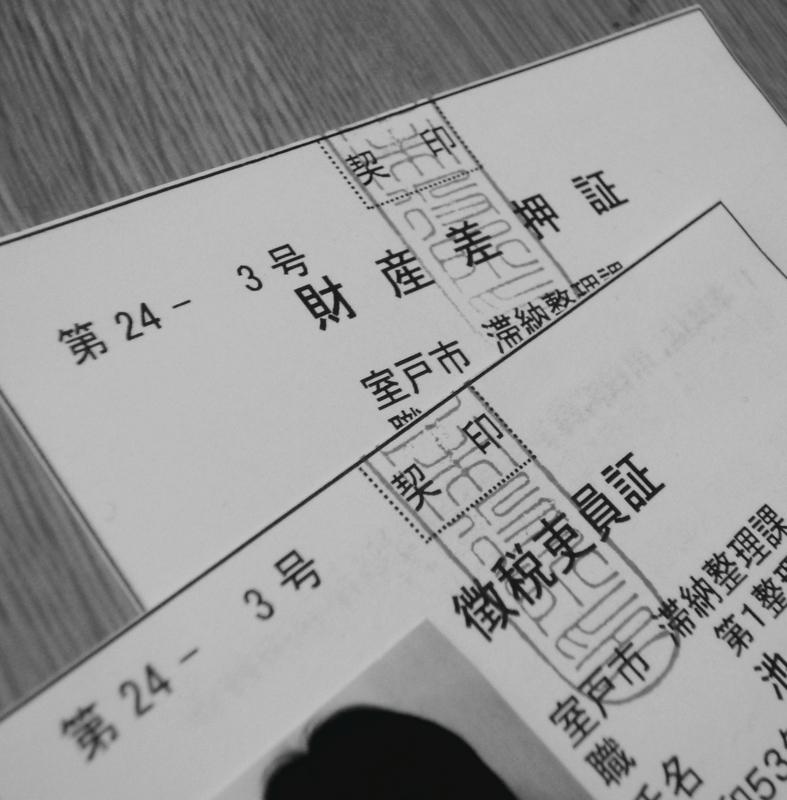 契 印
第24－ 3号
財産差押証
室戸市 滞納整理課
職
契 印
第24－ 3号
徴税吏員証
室戸市 滞納整理課
第1整理
職
氏名 池
和53年